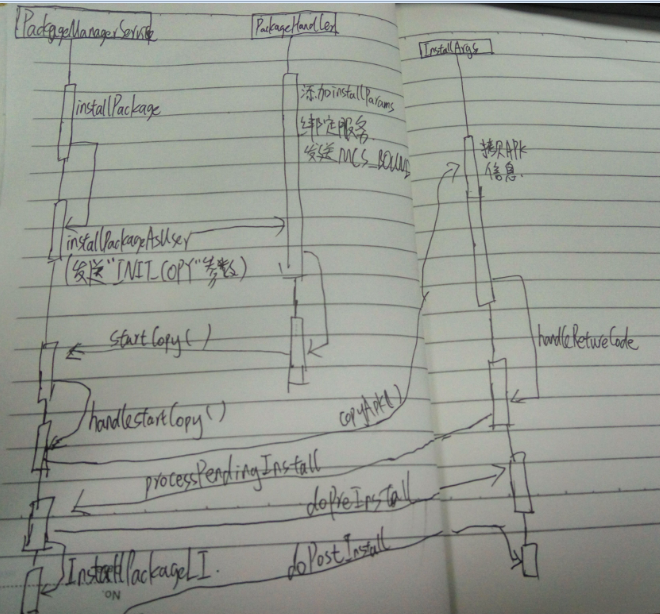 PackageManagerService
PackageHandler
InstallArgs
installPackage
添加installParams
绑定服务
发送MCS_BOUND
拷贝APK
信息
installPackageAsUser
(发送"INIT_COPY"参数)
startCopy()
handleRetureCode
handlestartCopy()
copyApk()
processPendingInstall
doPreInstall
InstallPackageLI
doPostInstall
NO.